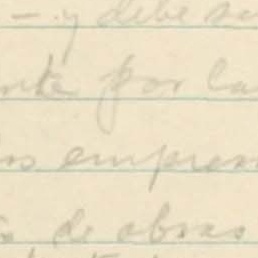 – y debe su
nte por la
os empres
s de obras